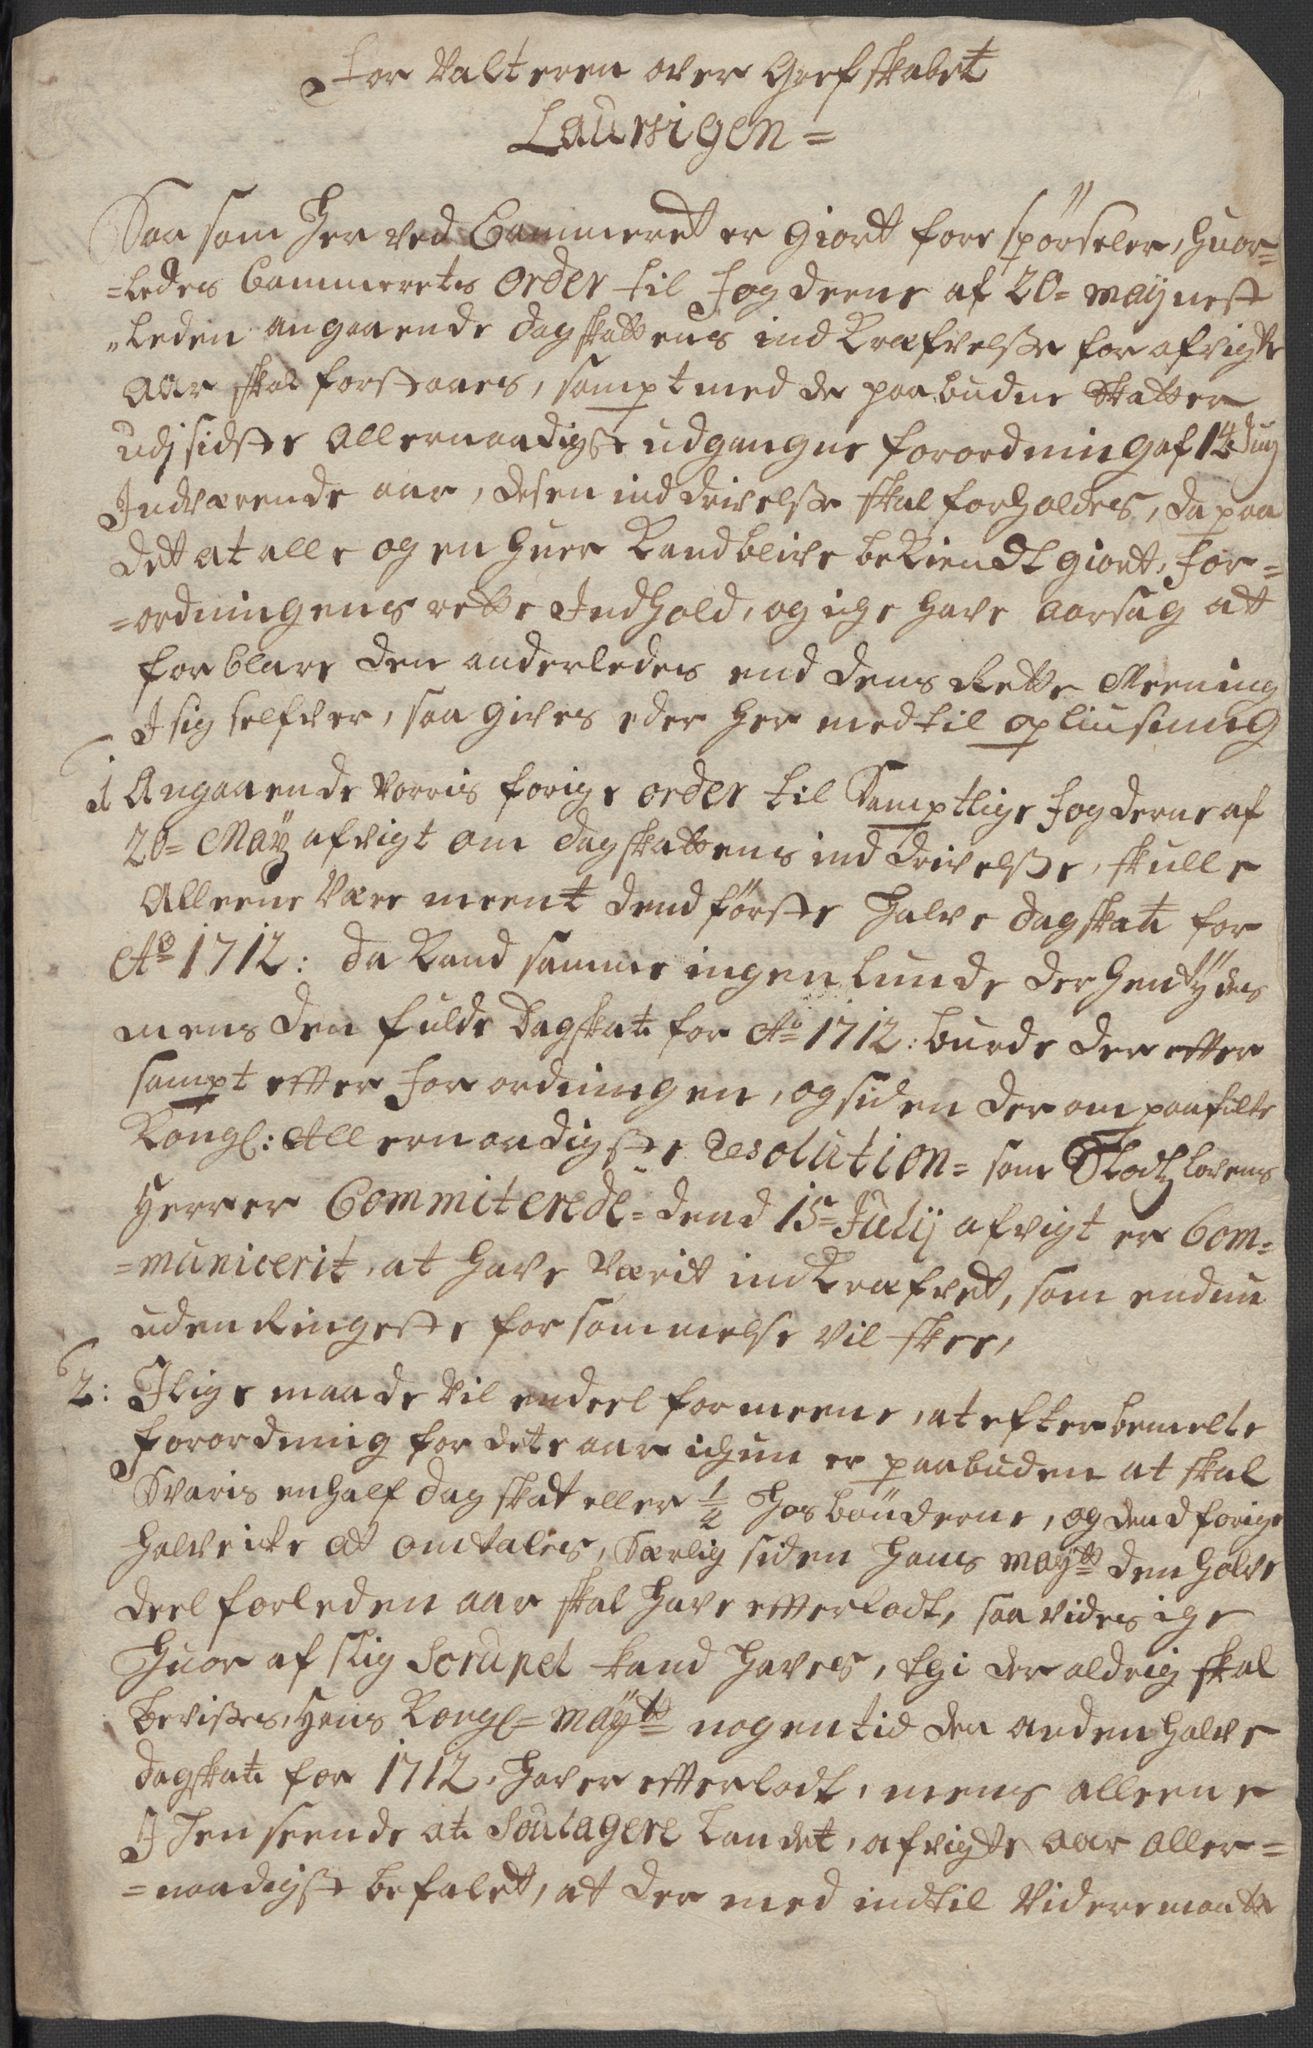 For Valteren over Grefskabet
Laurvigen =
Saa som Her ved Cammeret er giort forespørseler, huor=
=ledes Cammerets Order til Fogderne af 20= May nest
"leden angaaende dagskattens indkræfvelsse for afvigte
Aar skal forstaaes, sampt med de paabudne Skatter
udj sidste Allernaadigste udgangne forordning af 14
Indværende aar, desen inddrivelsse skal forholdes, da paa
dett at alle og en huer kand blive bekiendt giort, for=
=ordningens rette Indhold, og iche have aarsag att
forklare den anderledes end dens Rette Meening
I sig selfver, saa gives eder her med til opliusning
1 Angaaende vorris forige order til Samptlige Fogderne af
20= May afvigt om dagskattens inddrivelsse, skulle
Alleene være meent dend første halve dagskatt for
Ao 1712: da kand samme ingenlunde der hentydes
mens den fulde Dagskatt for Ao 1712: burde der efter
sampt efter forordningen, og siden der om paafulte
Kongl: Allernaadigste Resolution= som Slodtzlovens
Herrer Commiterede= dend 15= Julij afvigt er Com=
=municerit, at have værit indkræfvet, som endnu
uden Ringeste forsømmelse vil skee,
2: I lige maade vil endeel formeene, at efter bemelte
forordning for dete aar ichun er paabuden at skal
Svaris en half dagskat eller 1/2 hos bønderne, og dend forige
halve icke at omtalis, særlig siden Hans Maytt den halve
deel forleden aar skal have efterladt, saa vides iche
Huor af slig Scrupel kand haves, thi der aldrig skal
bevisses, Hans Kongl= Maytt nogen tid den anden halve
dagskatt for 1712, haver efterladt, mens alleene
I henseende at Soulagere Landet, afvigte aar aller=
=naadigst befalet, at der med indtil Videre maatte